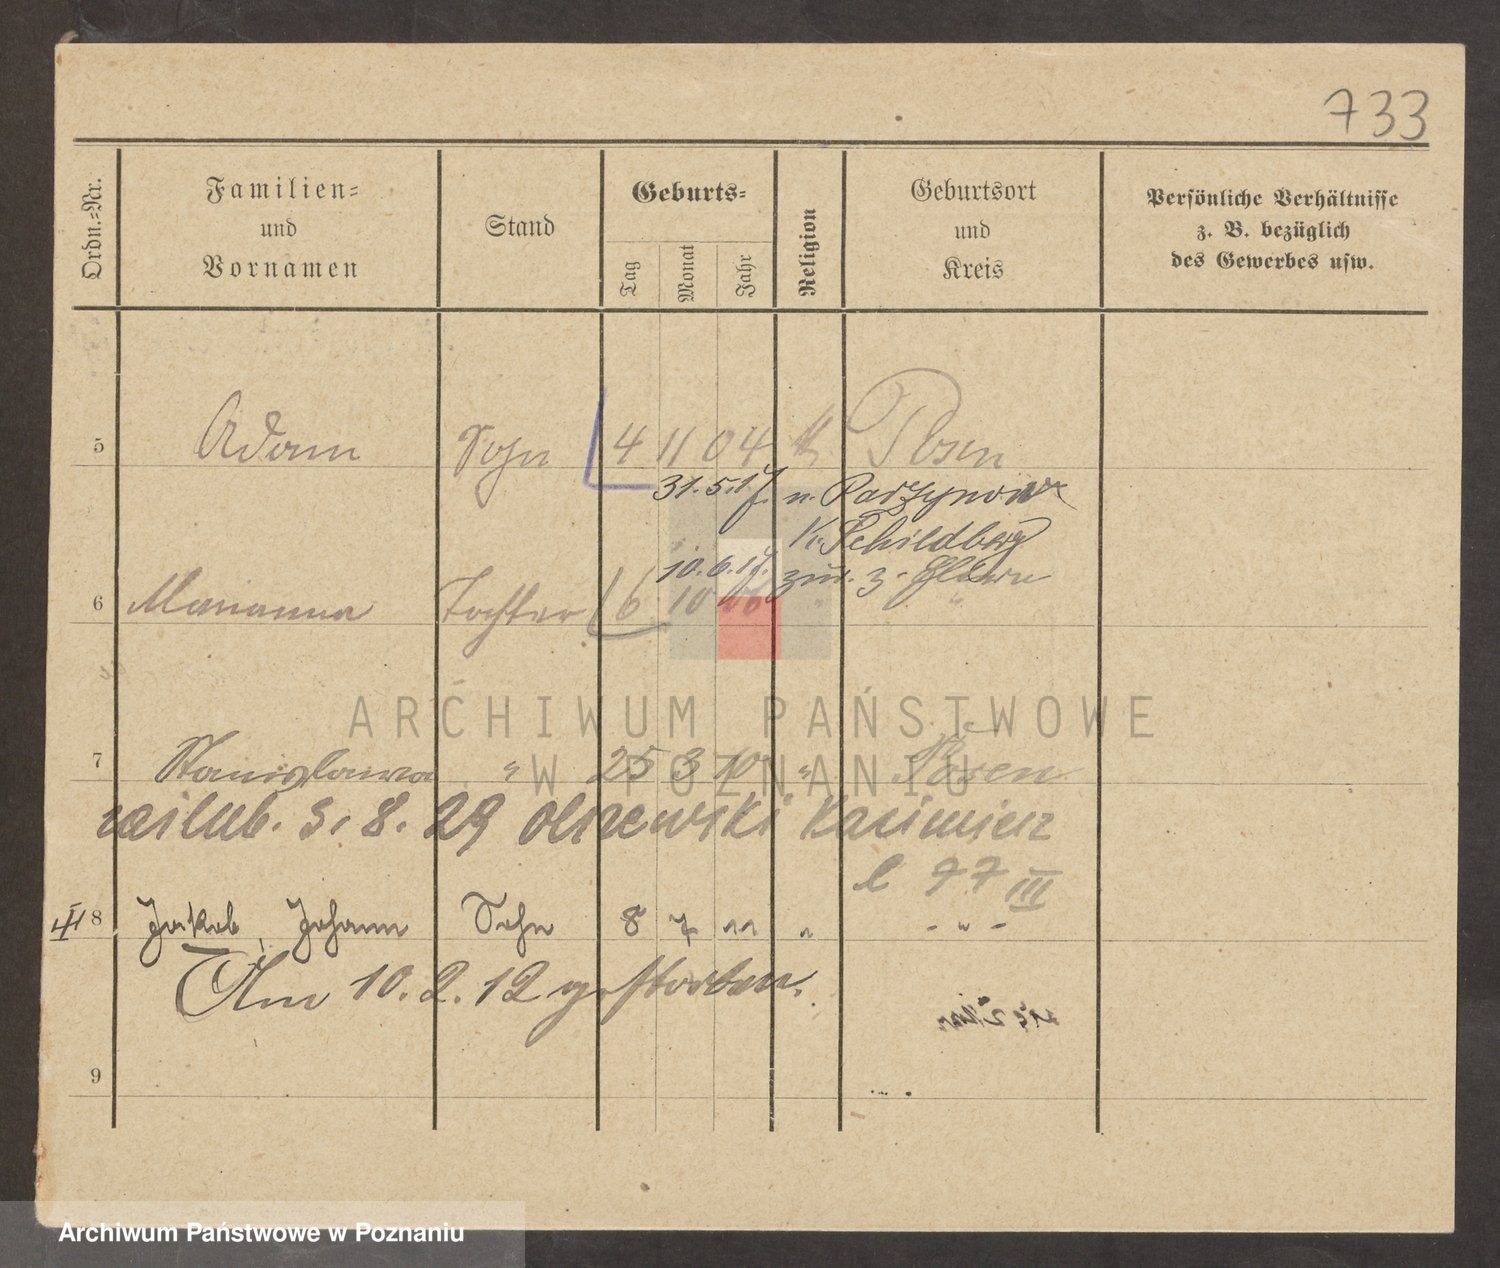 733
Ordn.-Nr.
Familien-
und
Vornamen
Stand
Geburts-
Tag
Monat
Jahr
Religion
Geburtsort
und
Kreis
Persönliche Verhältnisse
z. B. bezüglich
des Gewerbes usw.
5 Adam Sohn 4 11 04 k. Posen
31.5.17. n. Parzynow
Kr. Schildberg
10.6.17. zur. z. Eltern
6 Marianna Tochter 6 10 06 "
ARCHIWUM PAŃSTWOWE
W POZNANIU
7 Stanislawa " 25 3 10 " Posen
zaślub. 3. 8. 29 Olszewski Kazimierz
l 77 III
8 Jakob, Johann Sohn 8 7 11 " - " -
Am 10. 2. 12 gestorben.
9
Archiwum Państwowe w Poznaniu